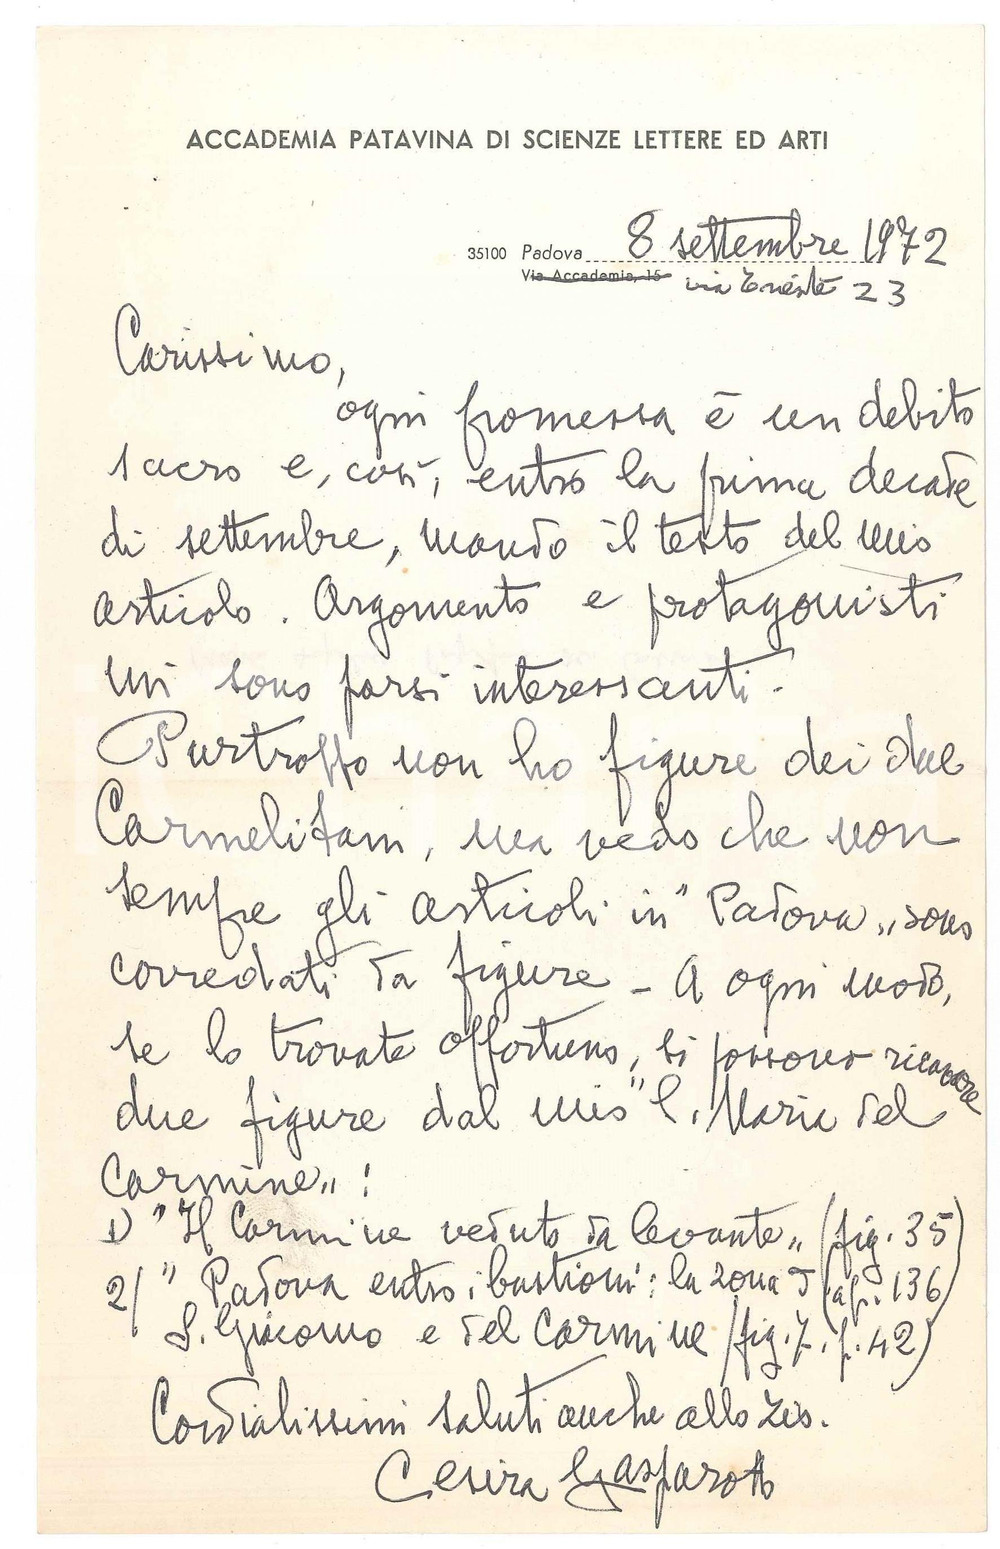 ACCADEMIA PATAVINA DI SCIENZE LETTERE ED ARTI
35100 Padova 8 settembre 1972
Via Accademia, 15 via Trieste 23
Carissimo,
ogni promessa è un debito
sacro e, così, entro la prima decade
di settembre, mando il testo del mio
articolo. Argomento e protagonisti
mi sono parsi interessanti.
Purtroppo non ho figure dei due
Carmelitani, ma vedo che non
sempre gli articoli in "Padova" sono
corredati da figure - A ogni modo,
se lo trovate opportuno, si possono ricavare
due figure dal mio "S. Maria del
Carmine":
1) "Il Carmine veduto da levante" (fig. 35
2) "Padova entro i bastioni: la zona di p. 136)
S. Giacomo e del Carmine (fig. 7. p. 42)
Cordialissimi saluti anche allo zio.
Cesira Gasparotto